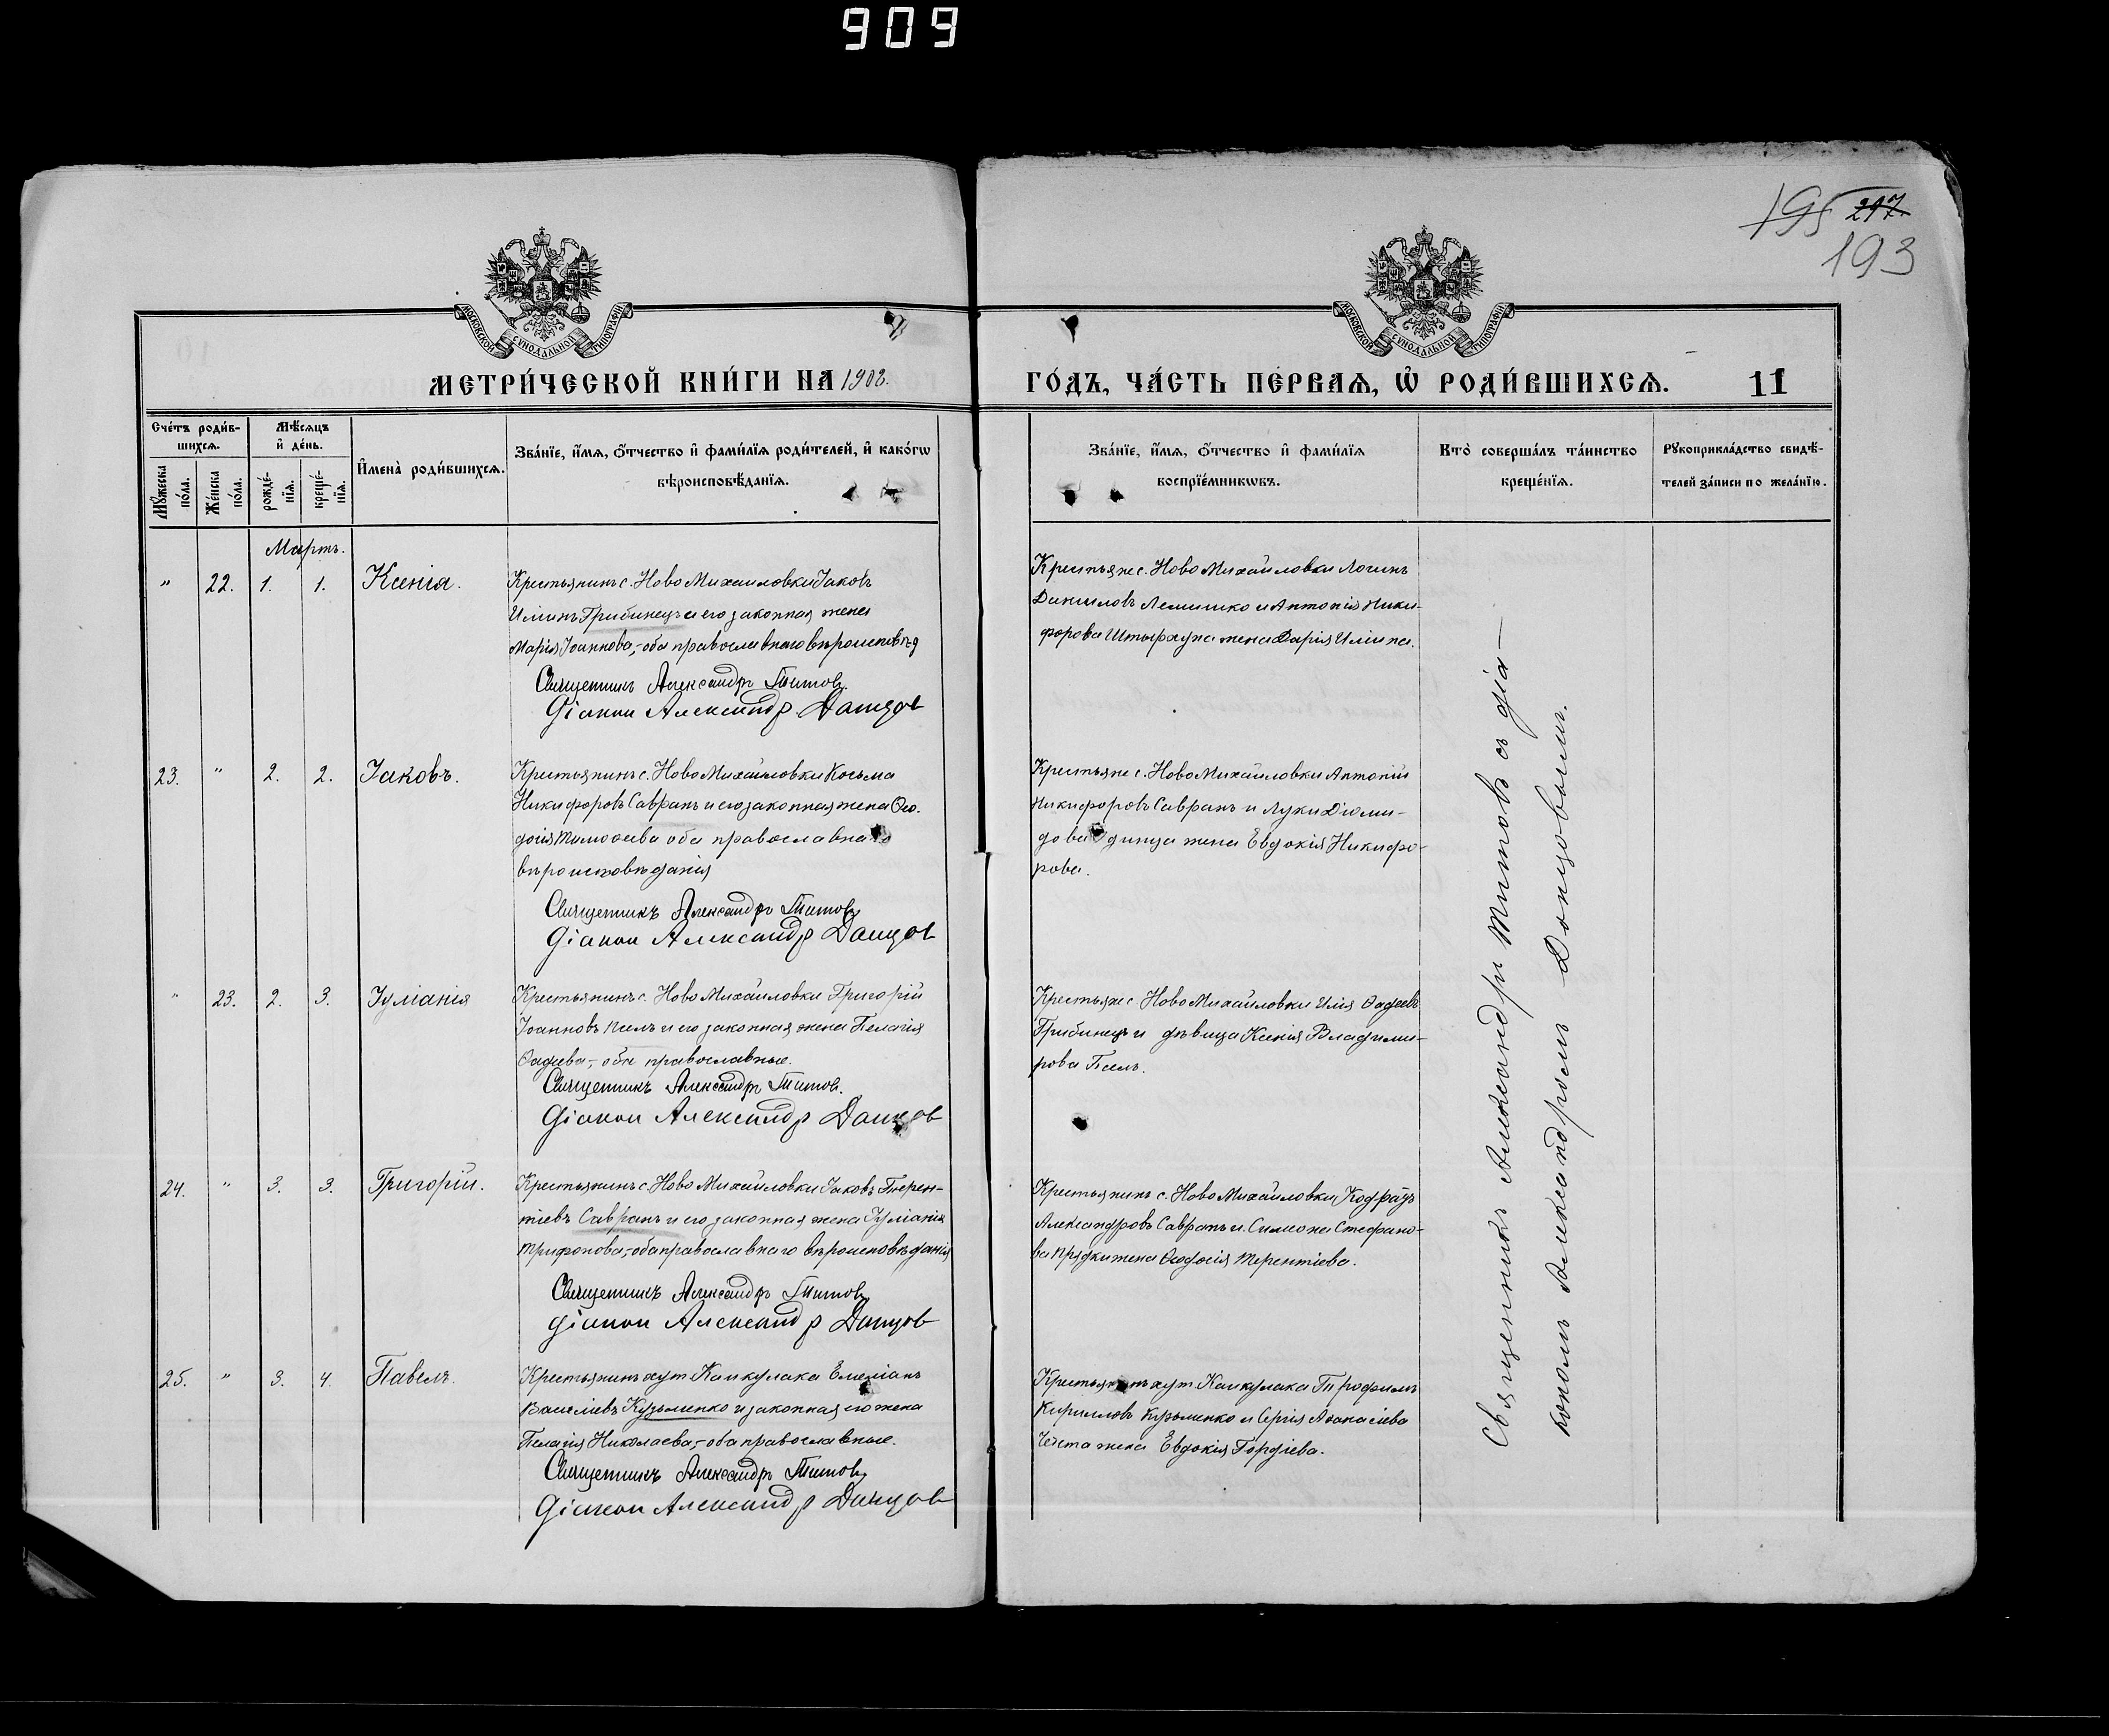 909
195 217.
193
МОСКОВСКОЙ СУНОДАЛЬНОЙ ТИПОГРАФІИ
МОСКОВСКОЙ СУНОДАЛЬНОЙ ТИПОГРАФІИ
МЕТРИ́ЧЕСКОЙ КНИ́ГИ НА 1908.
ГО́ДЪ, ЧА́СТЬ ПЕ́РВАѦ, Ѿ РОДИ́ВШИХСѦ. 11
Сче́тъ роди́в-
шихсѧ.
Мѣ́сѧцъ
и҆ де́нь.
Мꙋ́жеска по́ла.
Же́нска по́ла.
рожде́-нїѧ.
креще́-нїѧ.
И҆мена̀ роди́вшихсѧ.
Зва́нїе, и҆́мѧ, ѻ҆́тчество и҆ фами́лїѧ роди́телей, и҆ како́гѡ
вѣроисповѣ́данїѧ.
Зва́нїе, и҆́мѧ, ѻ҆́тчество и҆ фами́лїѧ
воспрїе́мникѡвъ.
Кто̀ соверша́лъ та́инство
креще́нїѧ.
Рꙋкоприкла́дство свидѣ́-
телей за́писи по жела́нїю.
Мартъ.
" 22. 1. 1. Ксенія.
Крестьянинъ с. Ново Михаиловки Іаковъ
Иліинъ Грибинецъ и его законная жена
Марія Іоаннова,- оба православнаго вѣроисповѣд
Священникъ Александръ Титовъ.
Діакон Александр Данцов
Крестьяне с. Ново Михаиловки Логинъ
Даниловъ Лемишко и Антонія Ники-
форова Штырхуна жена Дарія Иліина.
23. " 2. 2. Іаковъ.
Крестьянинъ с. Ново Михаиловки Косьма
Никифоровъ Савранъ и его законная жена Ѳео-
досія Тимоѳеева оба православнаго
вѣроисповѣданія
Священникъ Александръ Титовъ
Діакон Александр Данцов
Крестьяне с. Ново Михаиловки Антоній
Никифоровъ Савранъ и Луки Діоми-
дова жена Евдокія Никифо-
рова.
" 23. 2. 3. Іуліанія
Крестьянинъ с. Ново Михаиловки Григорій
Іоанновъ Пселъ и его законная жена Пелагія
Ѳадеева,- оба православные.
Священникъ Александръ Титов.
Діакон Александр Данцов
Крестьяне с. Ново Михаиловки Илія Ѳадеевъ
Грибинецъ и дѣвица Ксенія Владими-
рова Пселъ.
24. " 3. 3. Григорій.
Крестьянинъ с. Ново Михаиловки Іаковъ Терен-
тіевъ Савранъ и его законная жена Іуліанія
Трифонова,- оба православнаго вѣроисповѣданія
Священникъ Александръ Титовъ
Діакон Александр Данцов
Крестьянинъ с. Ново Михаиловки Кодратъ
Александровъ Савранъ и Симеона Стефано-
ва Прядки жена Ѳеодосія Терентіева.
25. " 3. 4. Павелъ.
Крестьянинъ хут. Канкулака Емеліанъ
Василіевъ Кузьменко и законная его жена
Пелагія Николаева,- оба православные.
Священникъ Александръ Титовъ
Діакон Александр Данцов
Крестьянинъ хут. Канкулака Трофимъ
Кирилловъ Кузьменко и Сергія Аѳанасіева
жена Евдокія Гордіева.
Священникъ Александръ Титовъ съ діа-
кономъ Александромъ Донцовымъ.